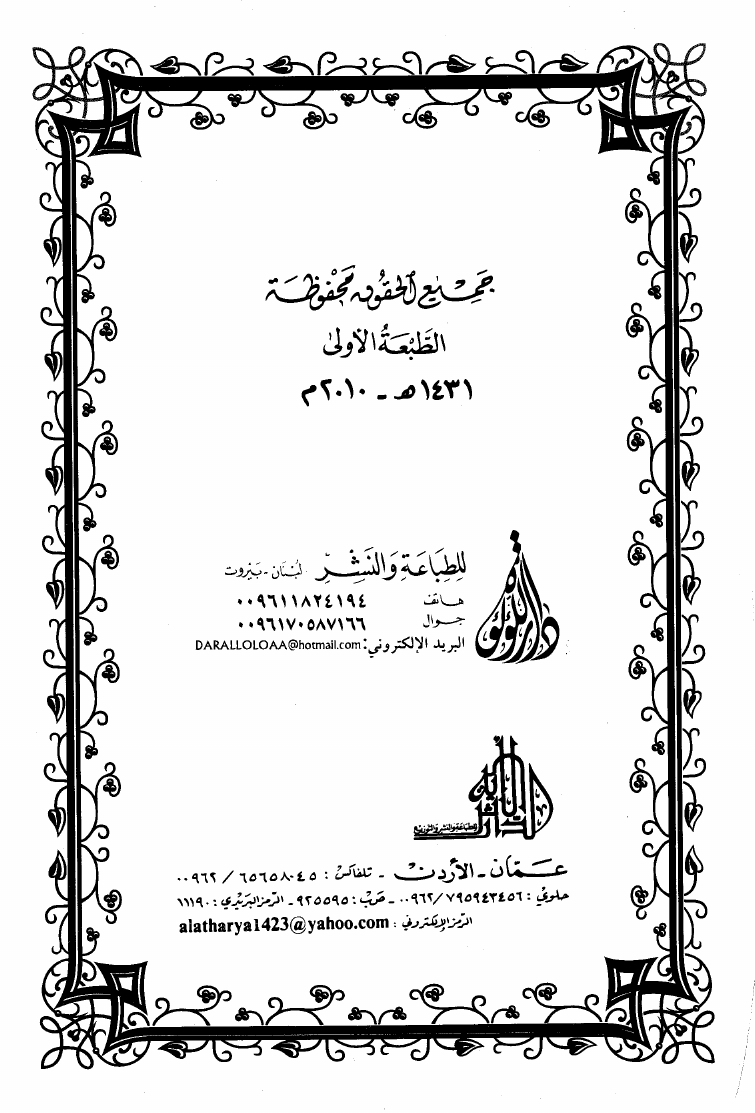 جَمِيع الحُقُوق مَحْفُوظَة
الطَّبْعَةُ الأولىٰ
١٤٣١هـ - ٢٠١٠م
دار اللؤلؤة
للطِبَاعَةِ وَالنَشْرِ لبُنان - بَيروت
هاتف ٠٠٩٦١١٨٢٤١٩٤
جوال ٠٠٩٦١٧٠٥٨٧١٦٦
البريد الإلكتروني: DARALLOLOAA@hotmail.com
الدار الأثرية
للطباعة والنشر والتوزيع
عَمّان - الأردن - تلفاكس : ٦٥٦٥٨٠٤٥ / ٠٠٩٦٢
خلوي : ٧٩٥٩٤٣٤٥٦ / ٠٠٩٦٢ - ص ب : ٩٢٥٥٩٥ - الرمز البريدي : ١١١٩٠
الرمز الإلكتروني : alatharya1423@yahoo.com